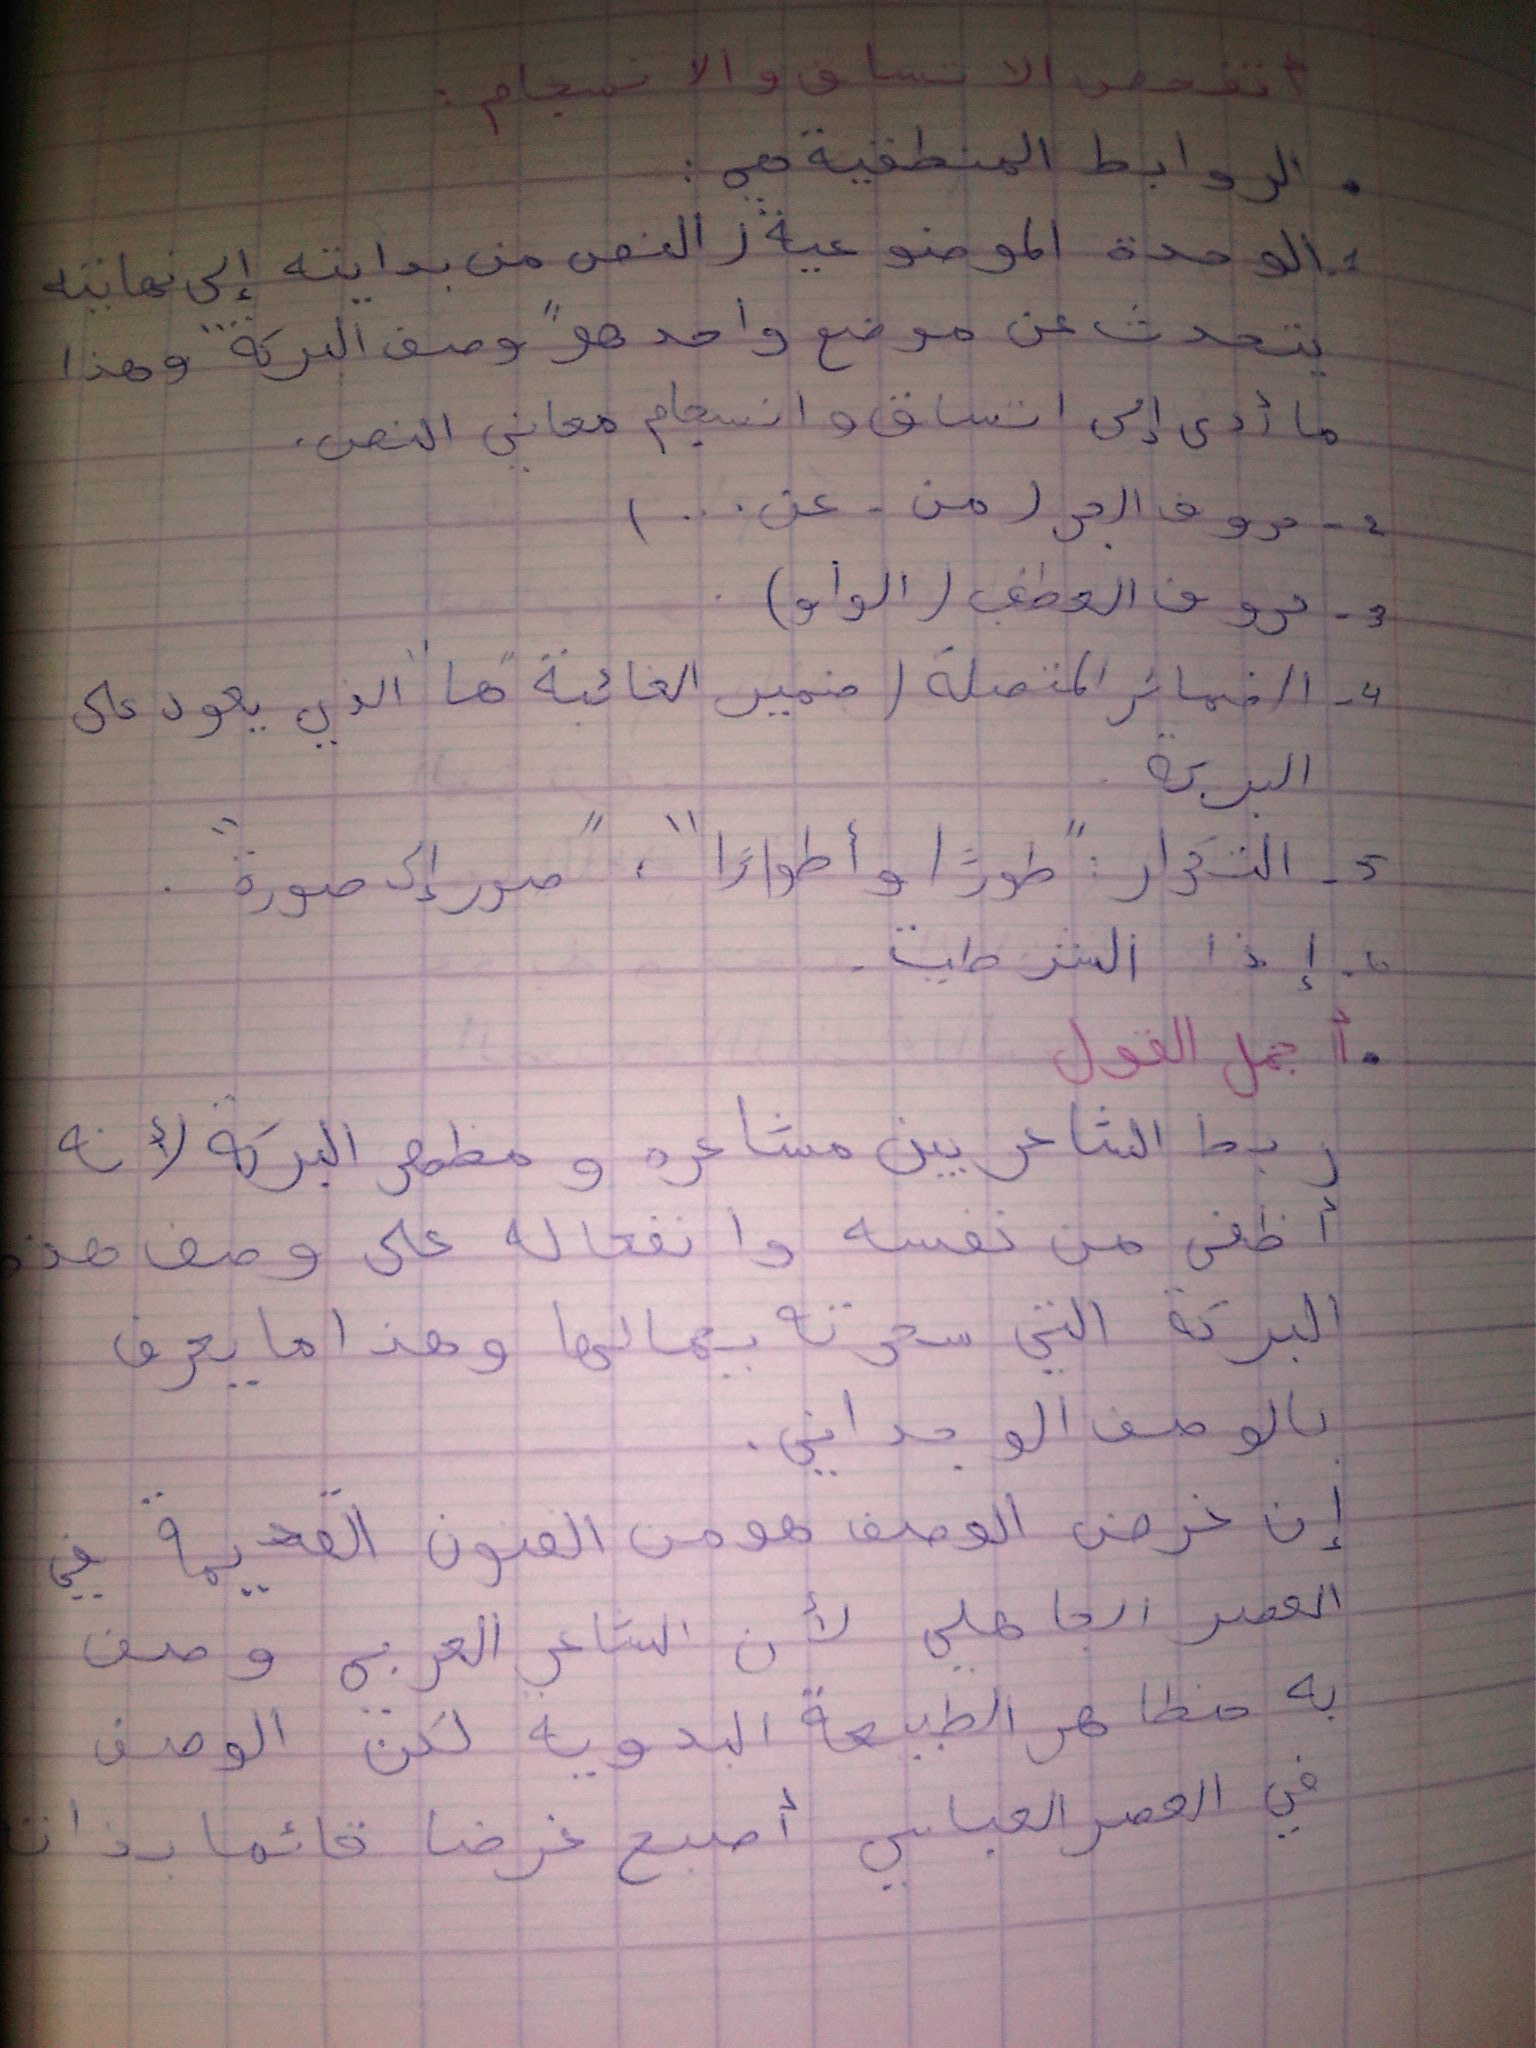 أتفحص الاتساق والانسجام :
. الروابط المنطقية هي :
1. الوحدة الموضوعية ( النص من بدايته إلى نهايته
يتحدث عن موضع واحد هو "وصف البركة" وهذا
ما أدى إلى اتساق وانسجام معاني النص.
2- حروف الجر ( من - عن ... )
3- حروف العطف ( الواو ) .
4- الضمائر المتصلة ( ضمير الغائبة "ها" الذي يعود على
البركة .
5- التكرار : "طورًا وأطوارًا" ، "صور إلى صورة" .
6. إذا الشرطية .
. أجمل القول
ربط الشاعر بين مشاعره و مظهر البركة لأنه
أظفى من نفسه وانفعاله على وصف هذه
البركة التي سحرته بجمالها وهذا ما يعرف
بالوصف الوجداني .
إن غرض الوصف هو من الفنون القديمة في
العصر الجاهلي لأن الشاعر العربي وصف
به مظاهر الطبيعة البدوية لكن الوصف
في العصر العباسي أصبح غرضا قائما بذات